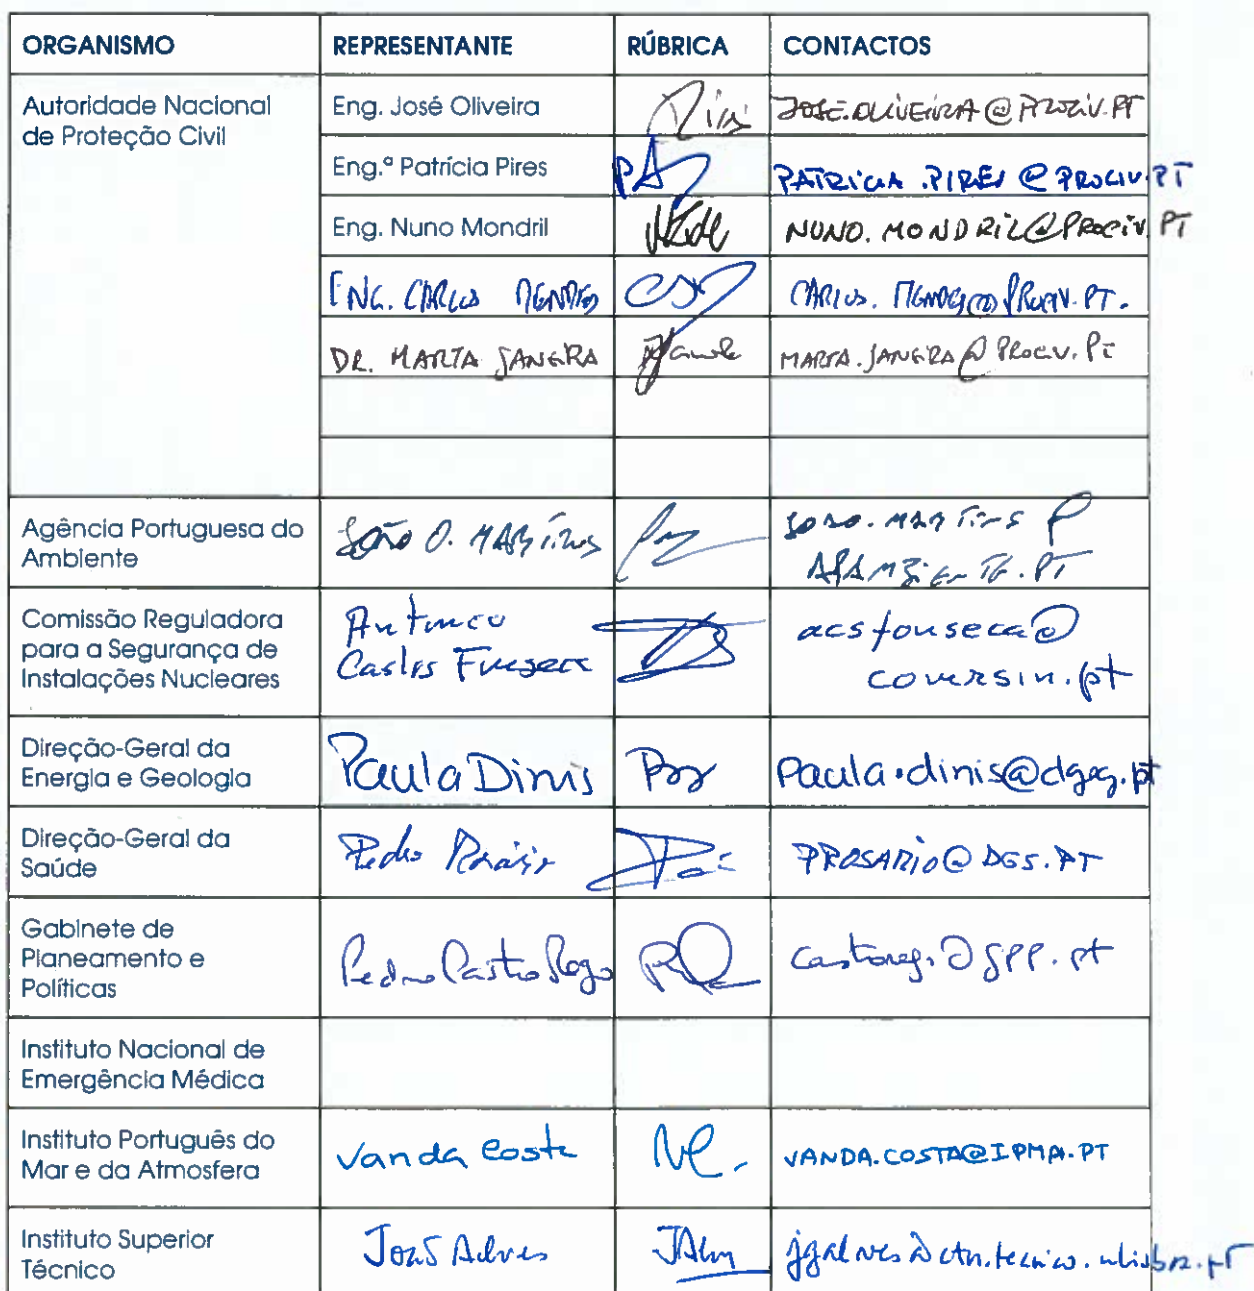 ORGANISMO REPRESENTANTE RÚBRICA CONTACTOS
Autoridade Nacional
de Proteção Civil
Eng. José Oliveira JOSE.OLIVEIRA@PROCIV.PT
Eng.ª Patrícia Pires PATRICIA.PIRES@PROCIV.PT
Eng. Nuno Mondril NUNO.MONDRIL@PROCIV.PT
ENG. CARLOS MENDES CARLOS.MENDES@PROCIV.PT.
DR. MARTA JANEIRA MARTA.JANEIRA@PROCIV.PT
Agência Portuguesa do
Ambiente
João O. MARTINS JOAO.MARTINS@
APAMBIENTE.PT
Comissão Reguladora
para a Segurança de
Instalações Nucleares
António
Carlos Fonseca
acsfonseca@
comrsin.pt
Direção-Geral da
Energia e Geologia
Paula Dinis paula.dinis@dgeg.pt
Direção-Geral da
Saúde
Pedro Rosário PROSARIO@DGS.PT
Gabinete de
Planeamento e
Políticas
Pedro Castro Rego @gpp.pt
Instituto Nacional de
Emergência Médica
Instituto Português do
Mar e da Atmosfera
Vanda Costa VANDA.COSTA@IPMA.PT
Instituto Superior
Técnico
João Alves jgalves@ctn.tecnico.ulisboa.pt